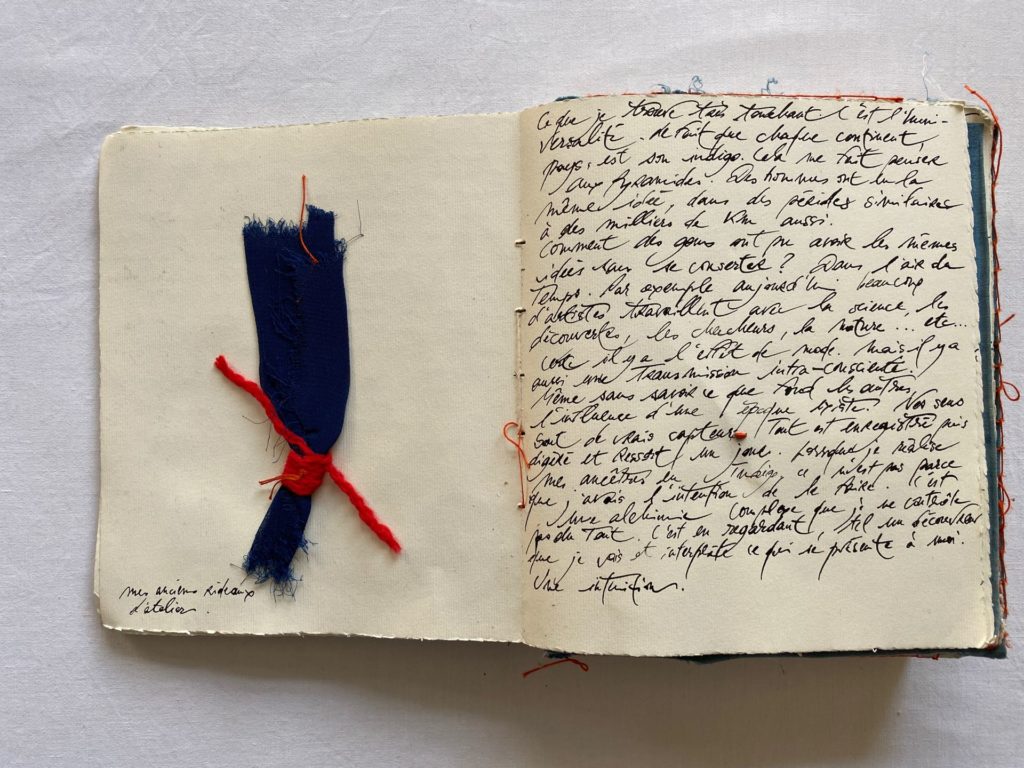 mes anciens rideaux
d'atelier.
Ce que je trouve très touchant c'est l'uni-
versalité. Le fait que chaque continent,
pays, est son indigo. Cela me fait penser
aux pyramides. Des hommes ont eu la
même idée, dans des périodes similaires
à des milliers de km aussi.
Comment des gens ont pu avoir les mêmes
idées sans se concerter ? Dans l'air du
Temps. Par exemple aujourd'hui beaucoup
d'artistes travaillent avec la science, les
découvertes, les chercheurs, la nature... etc...
certe il y a l'effet de mode. Mais il y a
aussi une transmission intra-consciente.
Même sans savoir ce que font les autres,
l'influence d'une époque existe. Nos sens
sont de vrais capteurs, Tout est enregistré puis
digéré et ressort un jour. Lorsque je réalise
mes ancêtres en ce n'est pas parce
que j'avais l'intention de le faire. C'est
une alchimie complexe que je ne contrôle
pas du tout. C'est en regardant, tel un découvreur
que je vois et interprète ce qui se présente à moi.
Une intuition.